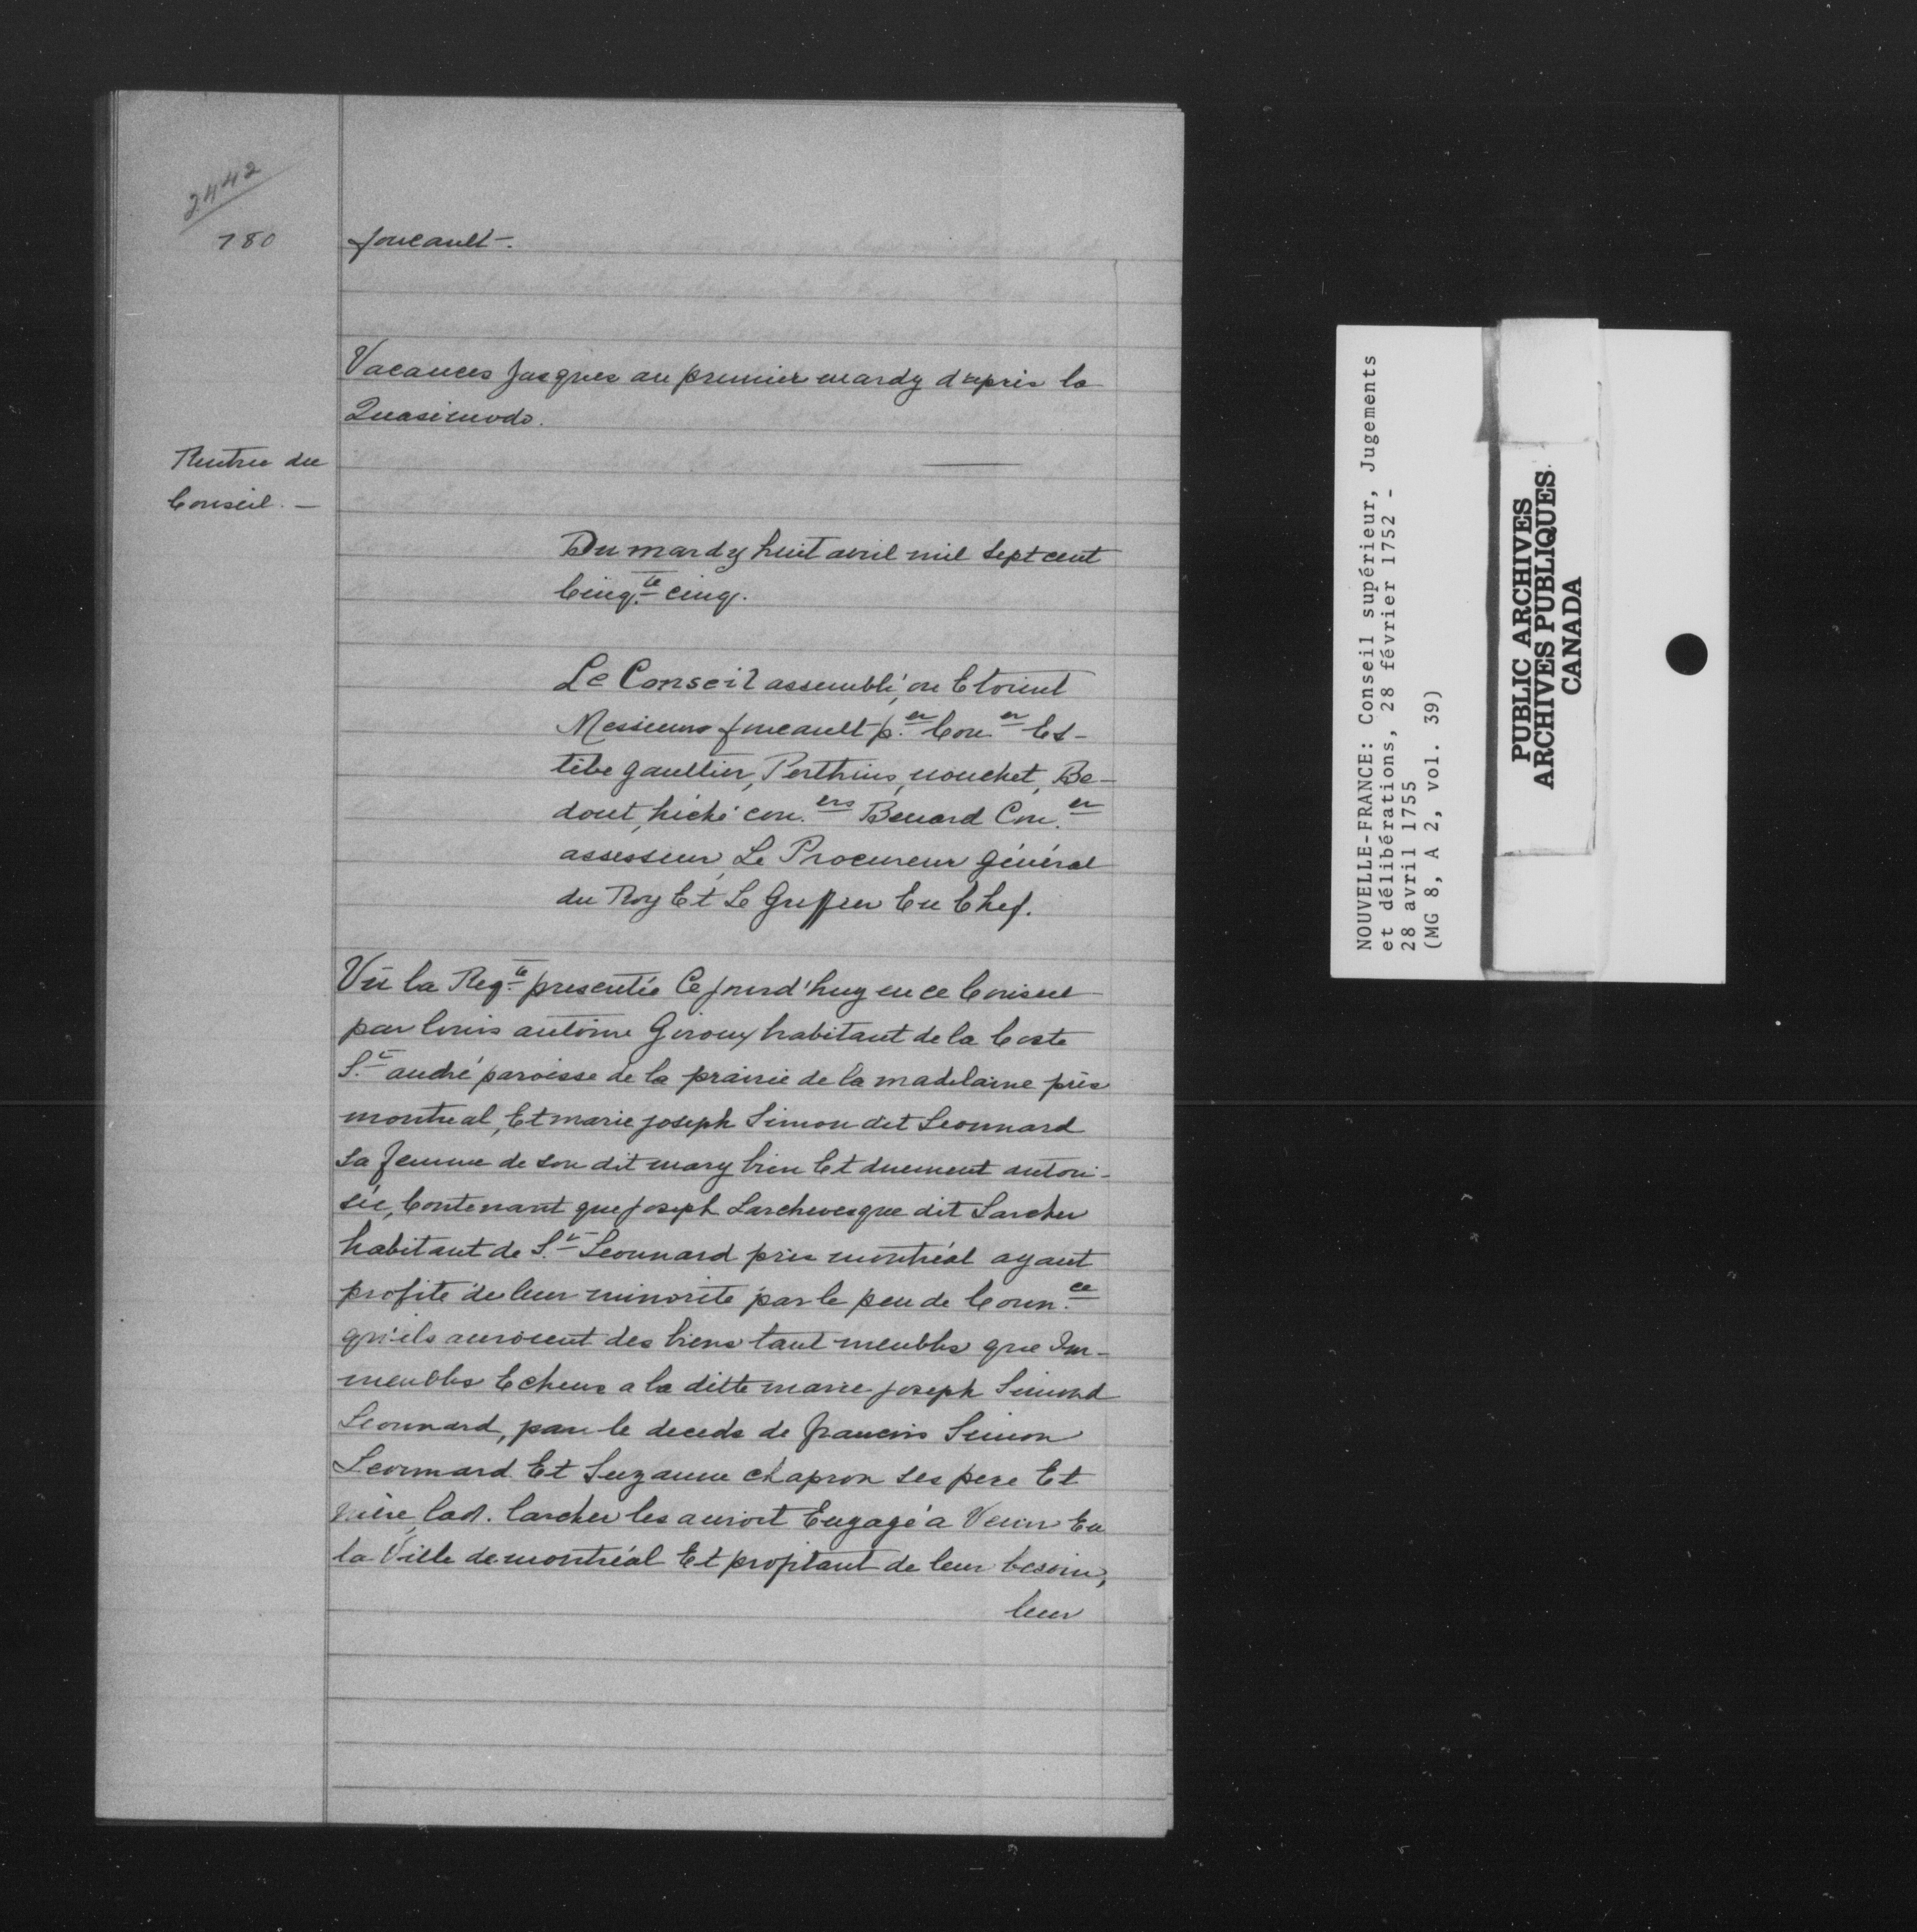 2442
180
foucault-.
Vacances Jusques au premier mardy d'apres la
Quasimodo.
Rentree du
Conseil. —
Du mardy huit avril mil sept cent
Cinq.te cinq.
Le Conseil assemblé, ou Etoient
Messieurs foucault p.er Con.er Es-
tèbe gaultier, Perthuis, nouchet, Be-
dout, hiché con.ers Benard Con.er
assesseur, Le Procureur général
du Roy Et Le Greffier En Chef.
Vû la Reqte presentée Ce jourd'huy en ce Conseil
par louis antoine Giroux habitant de la Coste
St andré paroisse de la prairie de la madelaine près
montreal, Et marie joseph Simon dit Leonnard
sa femme de son dit mary bien Et duement autori-
sée, Contenant que joseph Larchevesque dit Larcher
habitant de St Leonnard près montréal ayant
profité de leur minorité par le peu de Conn.ce
qu'ils auroient des biens tant meubles que Im-
meubles Echeus a la ditte marie joseph Simond
Leonnard, par le deceds de francois Simon
Leonnard Et Suzanne chapron ses pere Et
mère, led. larcher les auroit Engagé à Venir En
la Ville de montréal Et profitant de leur besoin,
leur
NOUVELLE-FRANCE: Conseil supérieur, Jugements
et délibérations, 28 février 1752 -
28 avril 1755
(MG 8, A 2, vol. 39)
PUBLIC ARCHIVES
ARCHIVES PUBLIQUES
CANADA